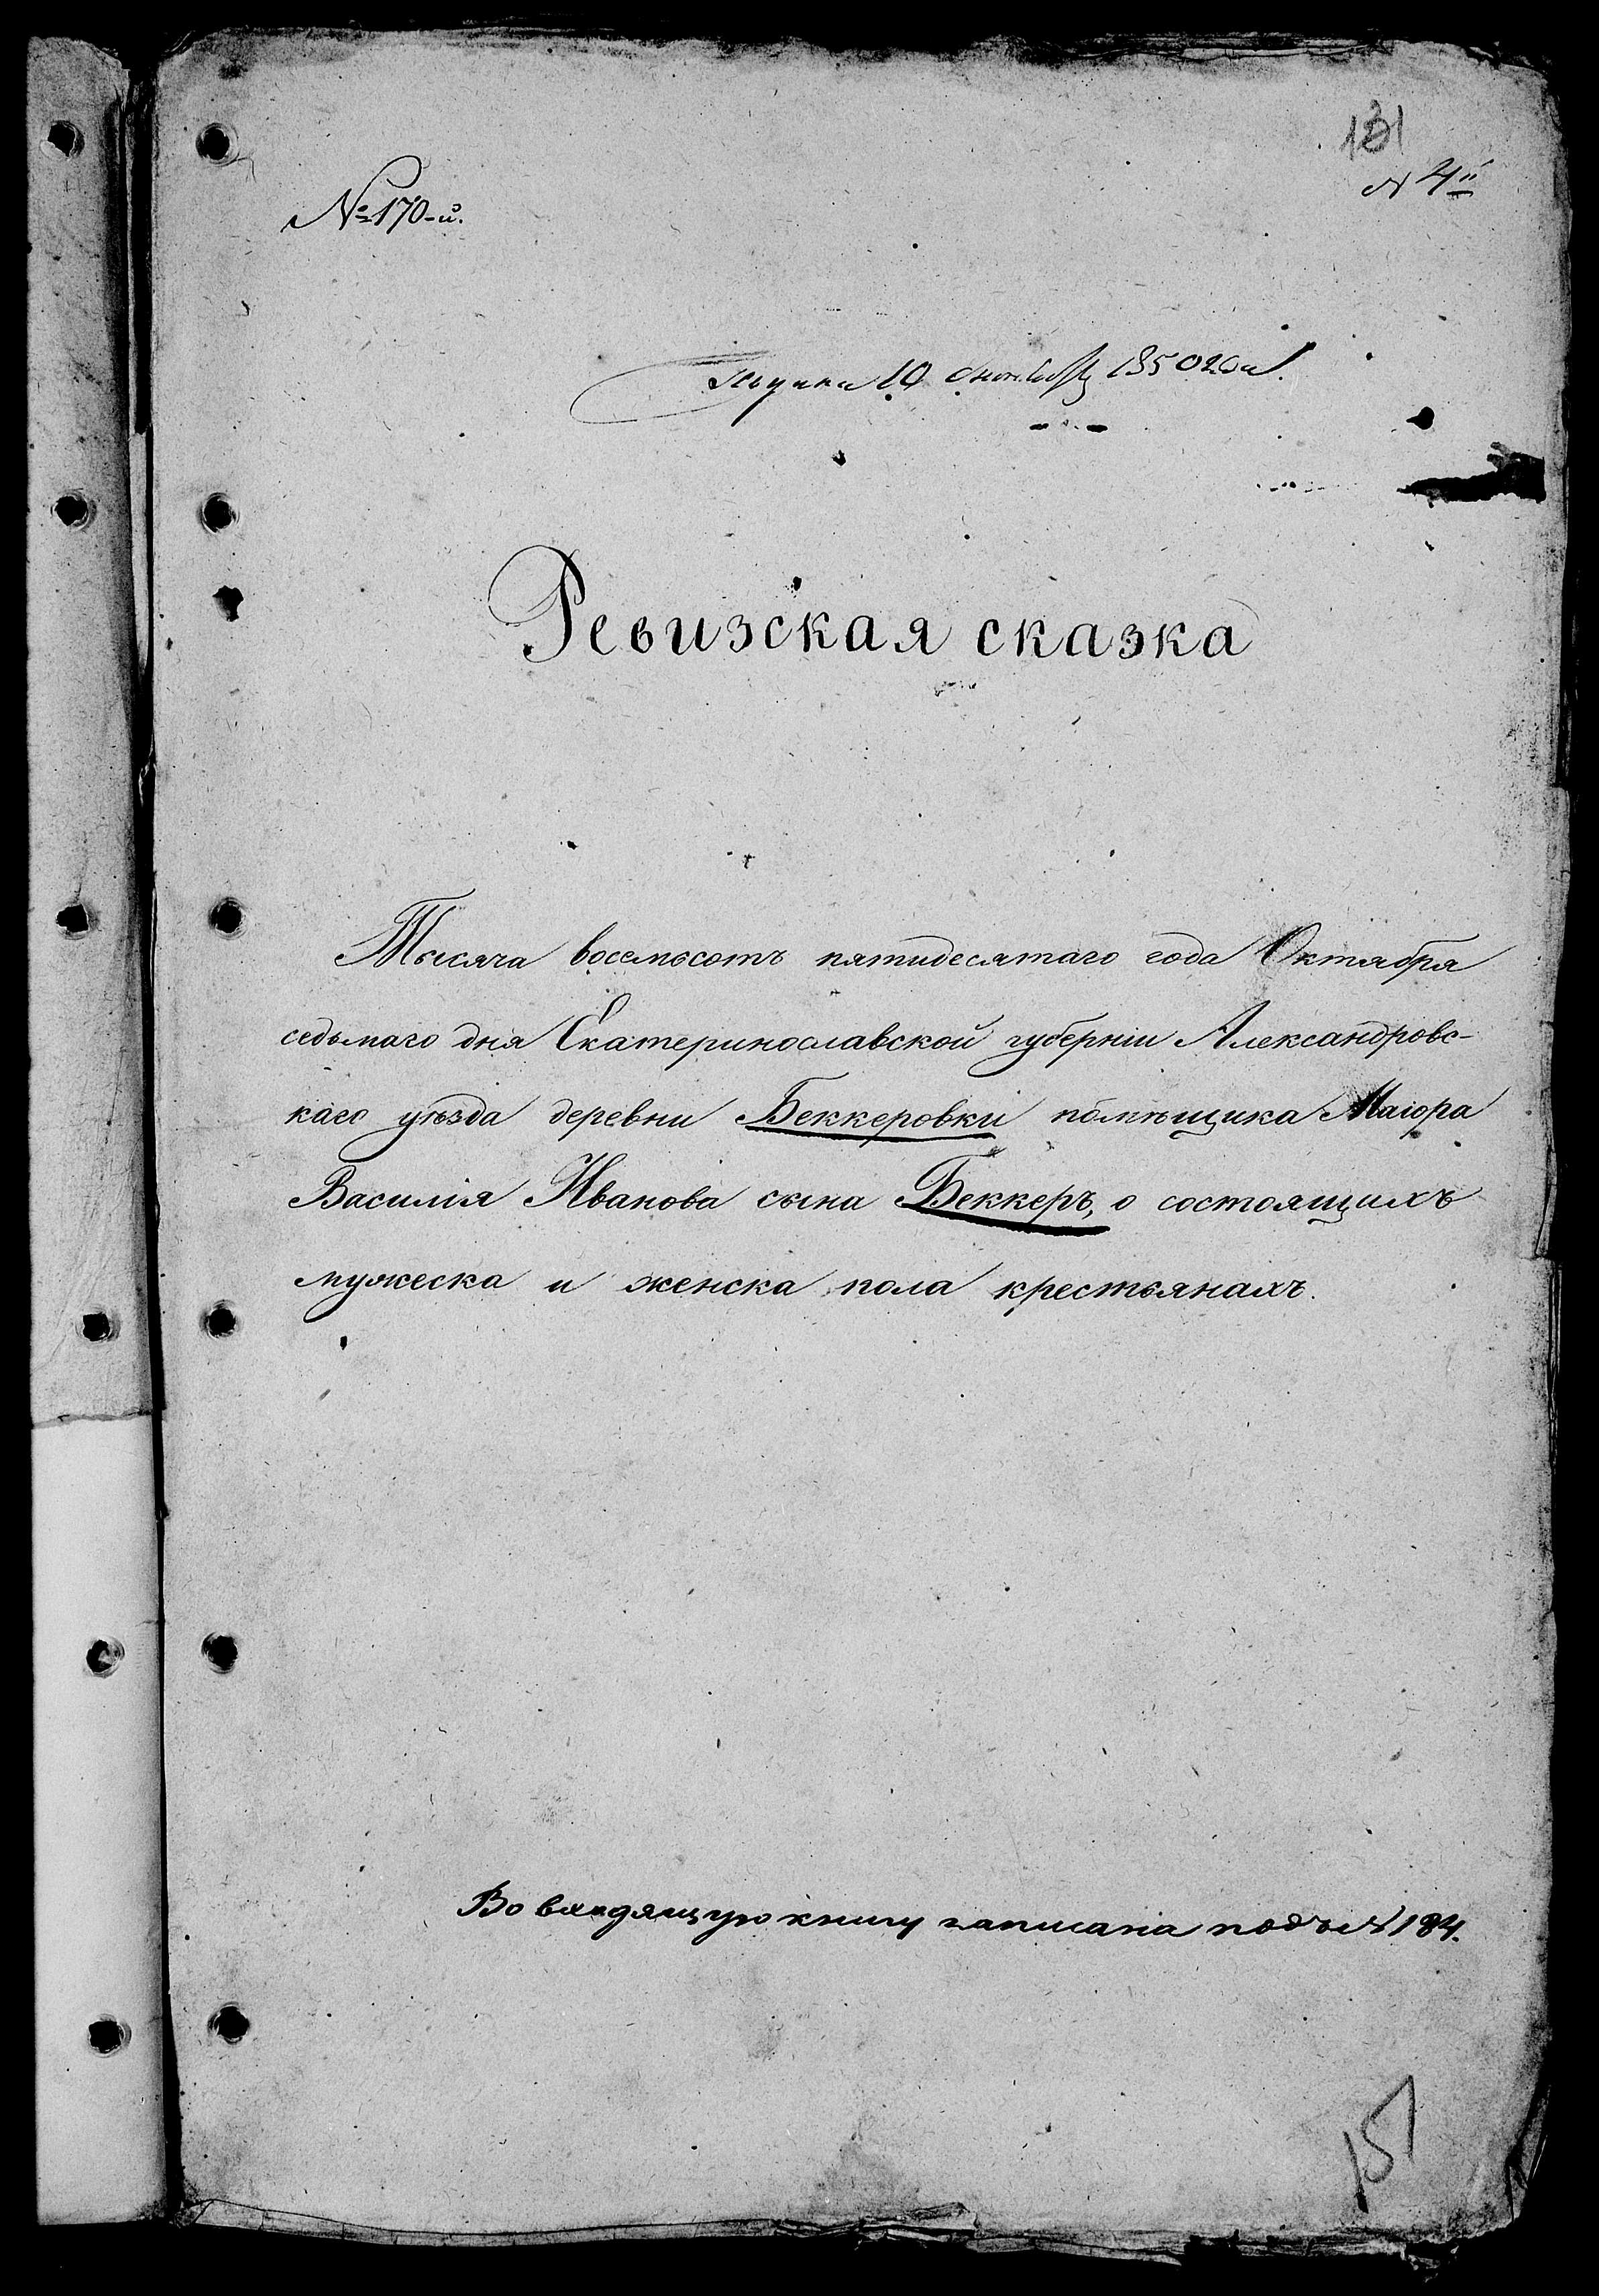 131
№ 4й
№ 170-й.
10 Октября 1850 года.
Ревизская сказка
Тысяча восемьсотъ пятидесятаго года Октября
седьмаго дня Екатеринославской губерніи Александровс-
каго уѣзда деревни Беккеровки помѣщика Маіора
Василія Иванова сына Беккеръ, о состоящихъ
мужеска и женска пола крестьянахъ.
Во входящую книгу записана подъ № 184.
151